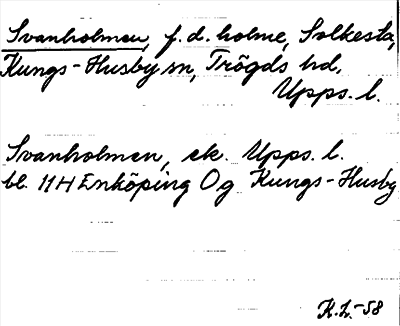 Svanholmen, f.d. holme, Solkesta,
Kungs-Husby sn, Trögds hd,
Upps. l.
Svanholmen, ek. Upps. l.
bl. 11H Enköping Og Kungs-Husby
K.L.-58